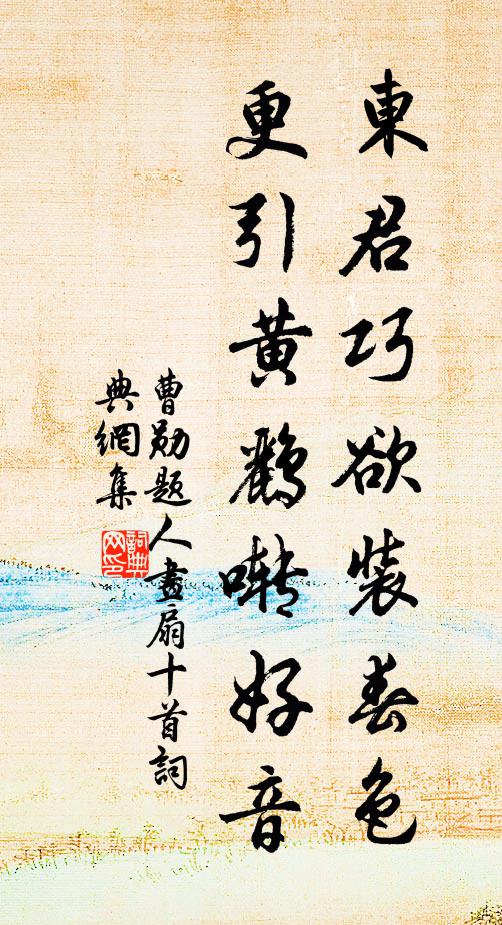 東君巧欲裝春色
更引黃鸝囀好音
曹勛題人畫扇十首詞
典網集
詞典网印